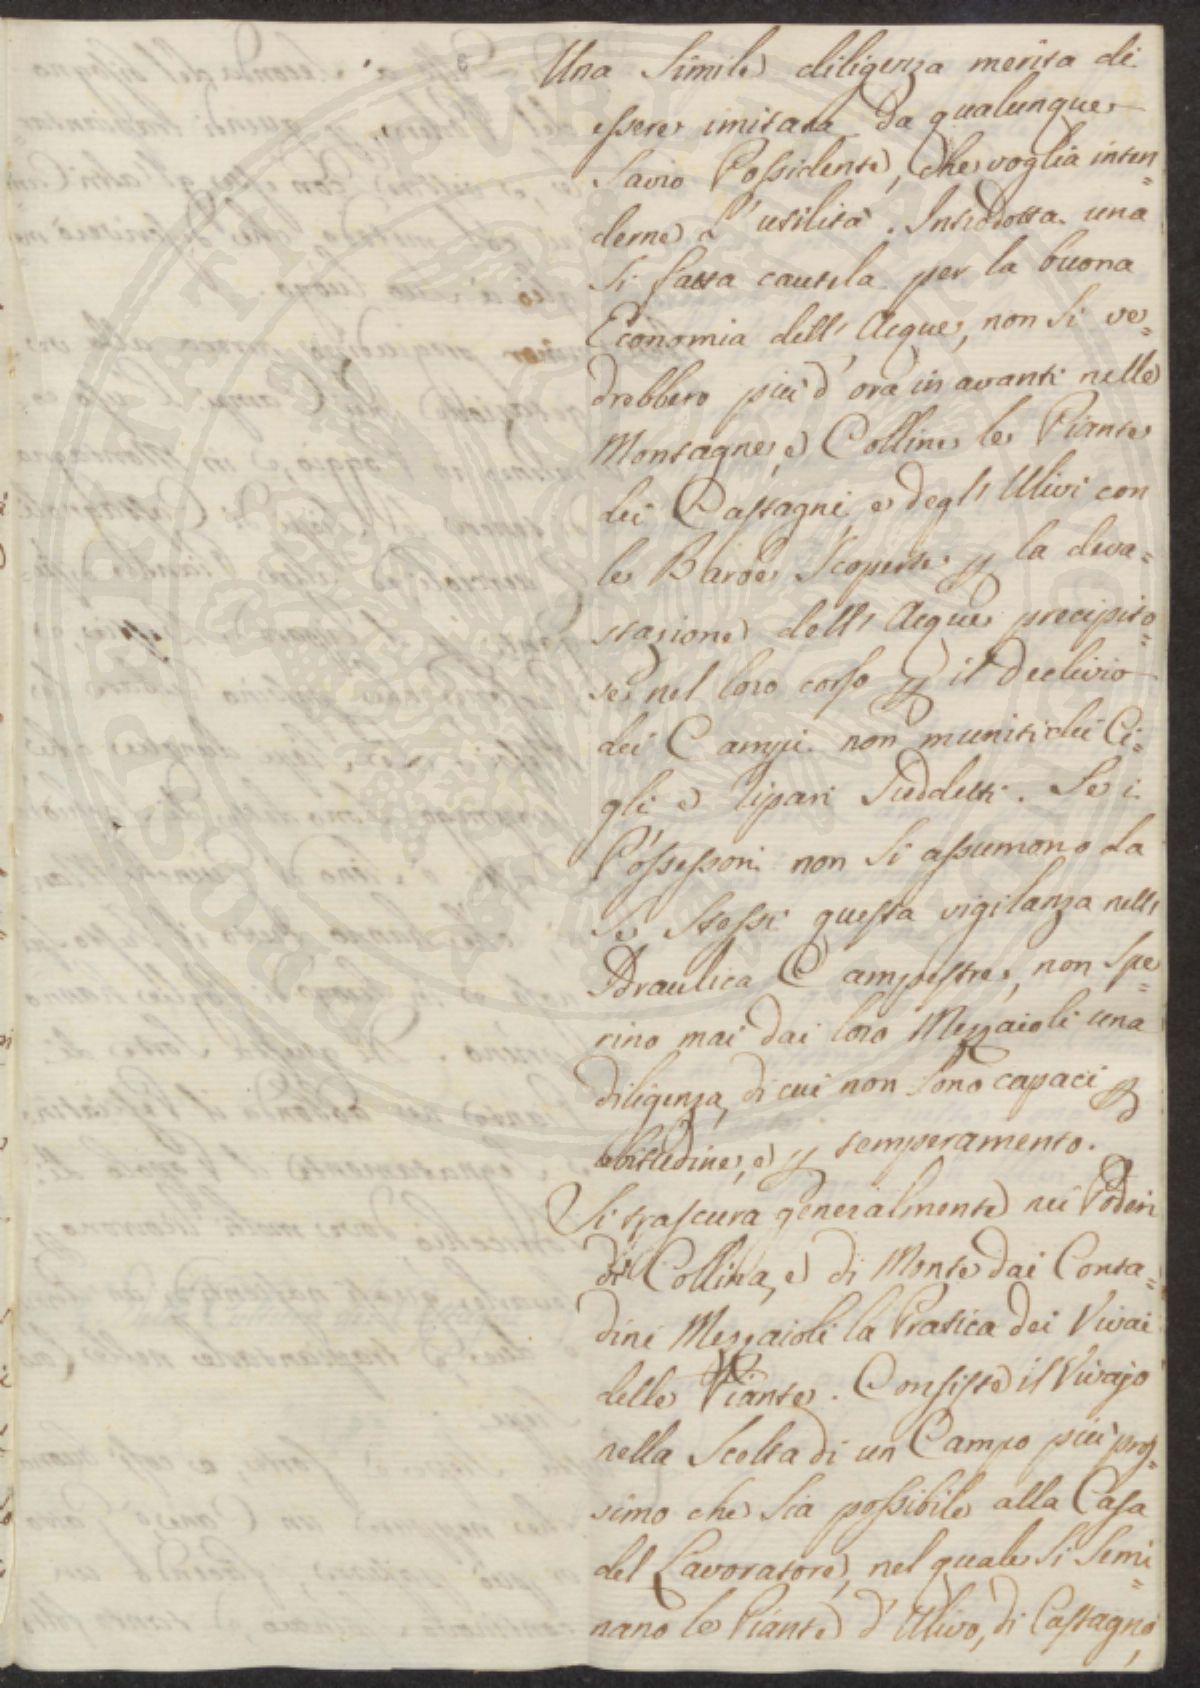 Una Simile diligenza merita di
essere imitata da qualunque
Savio Possidente, che voglia inten=
derne l'utilità. Introdotta una
si fatta cautela per la buona
Economia dell'Acque, non si ve=
drebbero più d'ora in avanti nelle
Montagne, e Colline le Piante
dei Castagni, e degl'Ulivi con
le Barbe Scoperte p la deva=
stazione dell'Acque precipito=
se nel loro corso p il Declivio
dei Campi non muniti dei Ci=
gli e ripari Suddetti. Se i
Possessori non si assumono da
se Stessi questa vigilanza nell'
Idraulica Campestre, non Spe=
rino mai dai loro Mezzaioli una
diligenza, di cui non Sono capaci p
abitudine, e p temperamento.
Si trascura generalmente nei Poderi
di Collina, e di Monte dai Conta=
dini Mezzaioli la Pratica dei Vivai
delle Piante. Consiste il Vivajo
nella Scelta di un Campo più pros=
simo che Sia possibile alla Casa
del Lavoratore, nel quale Si Semi=
nano le Piante d'Ulivo, di Castagno,